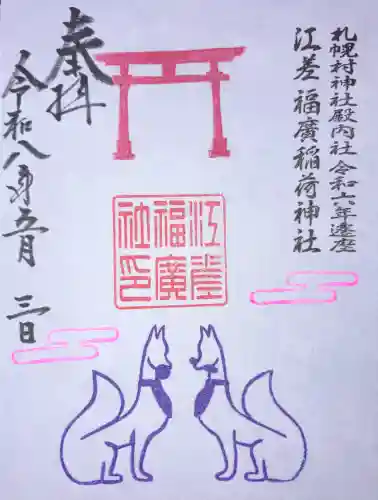 札幌村神社殿内社 令和六年遷座
江差 福廣稲荷神社
奉拝
令和八年五月三日
江差
福廣
社印